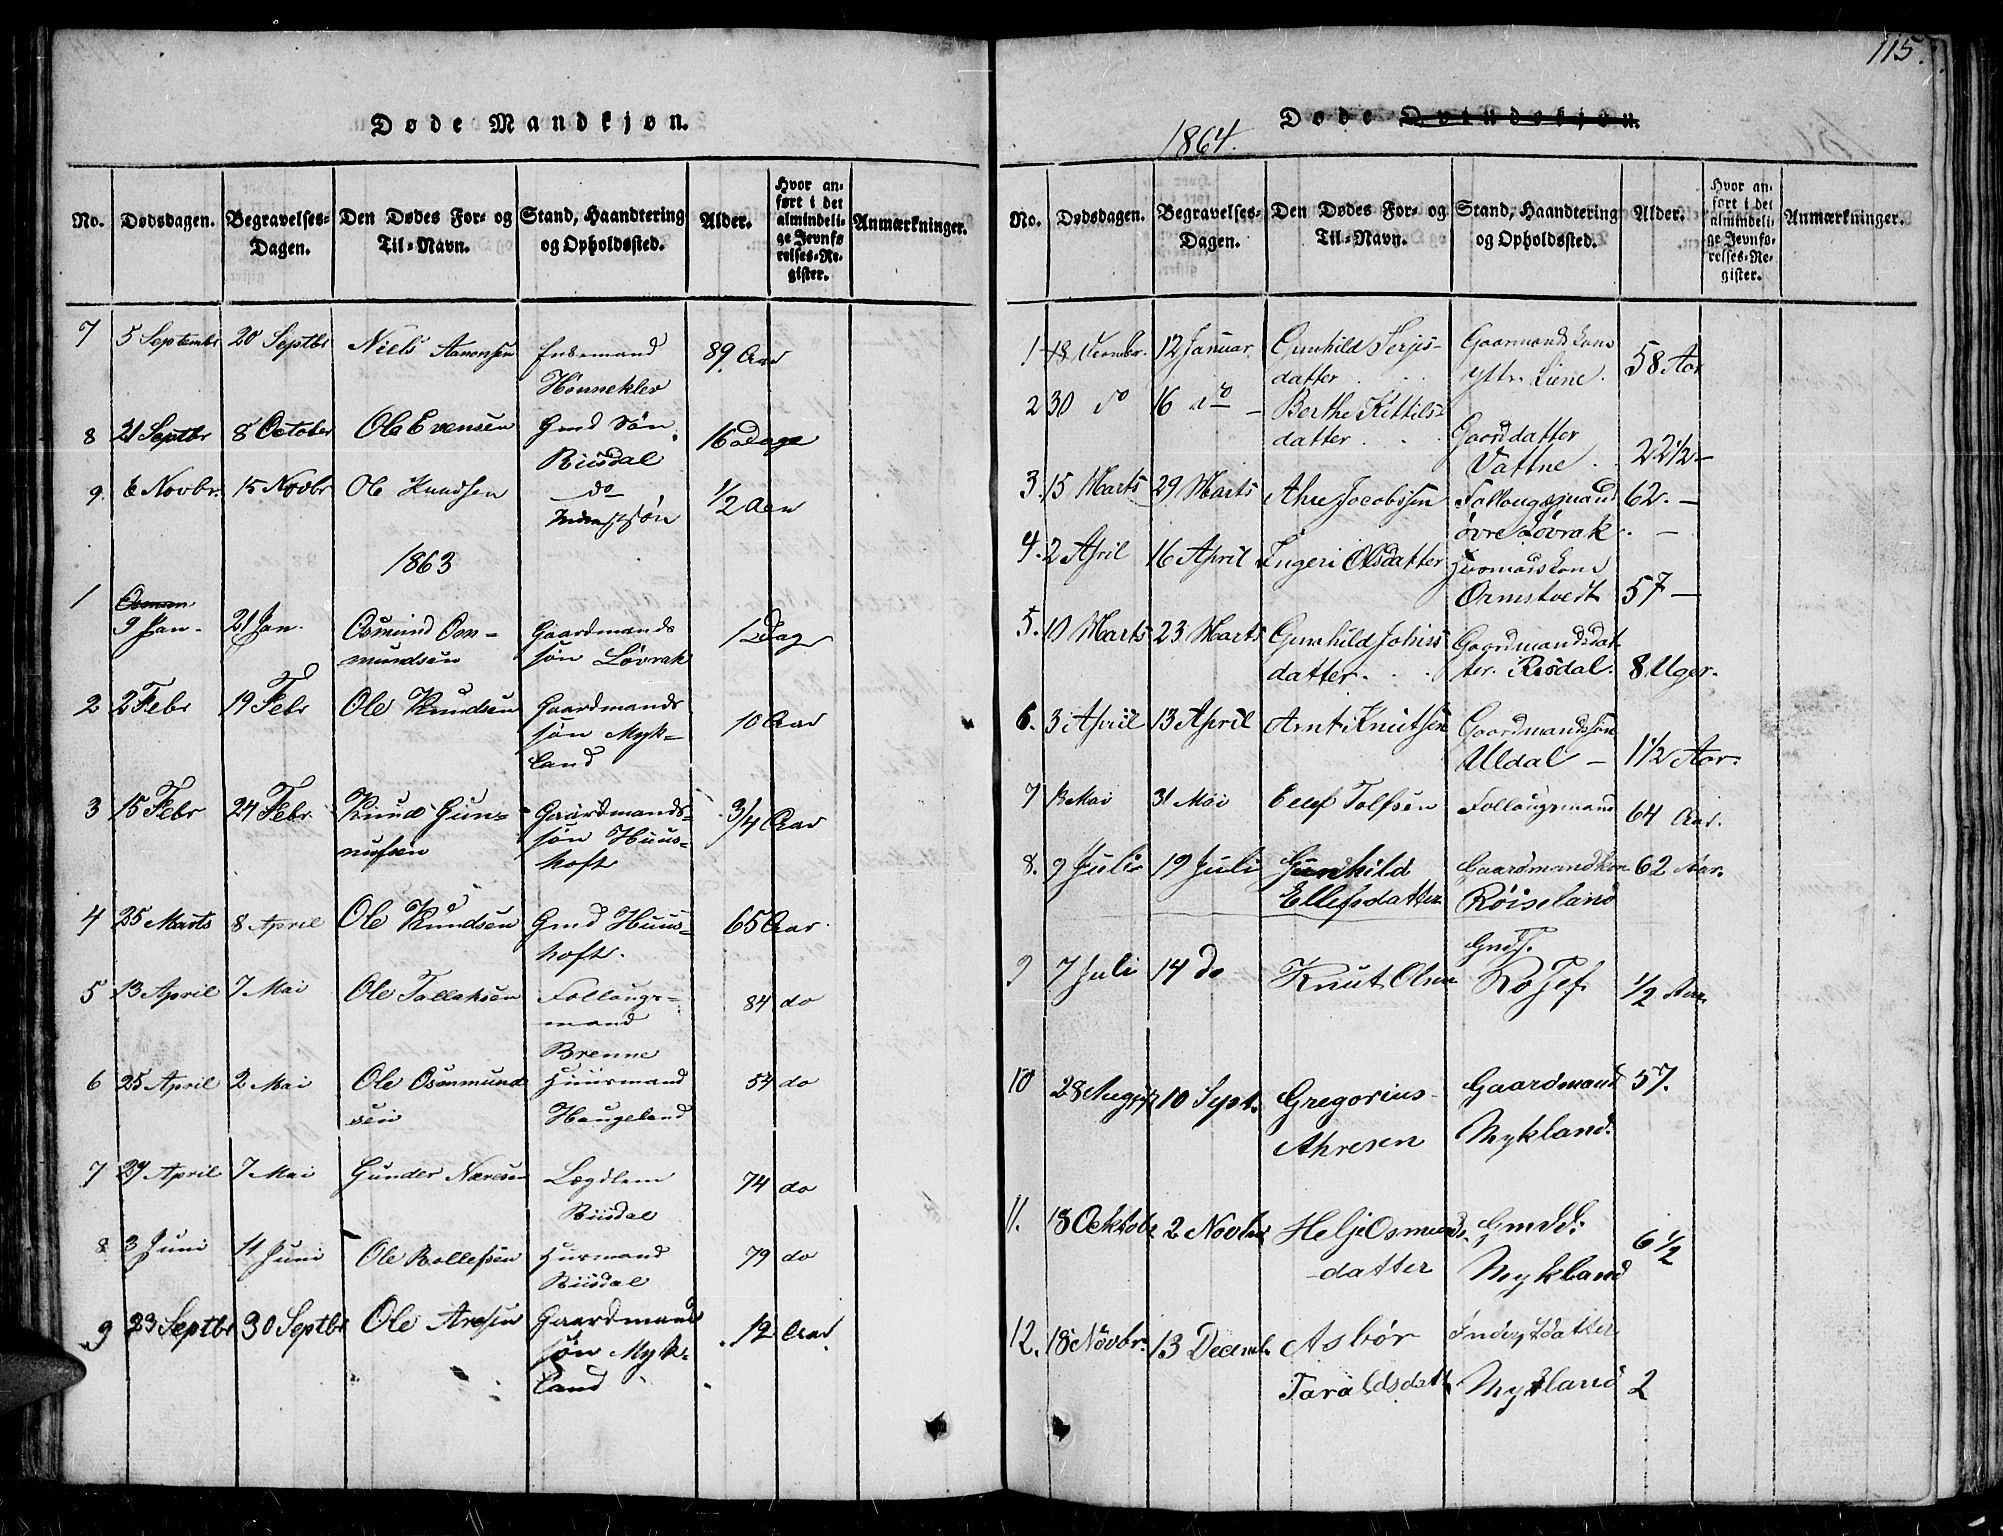 Døde Mandkjøn.
No. Dødsdagen. Begravelses-Dagen. Den Dødes For- og Til-Navn. Stand, Haandtering og Opholdssted. Alder. Hvor anført i det almindelige Jevnførelses-Register. Anmærkninger.
7 5 Septembr 20 Septbr Niels Aanonsen Enkemand 89 Aar
Hønneklev
8 21 Septbr 8 October Ole Evensen Gmd Søn 16 Dage
Riisdal
9. 6 Novbr. 15 Novbr Ole Knudsen do 1/2 Aar
Inderstsøn
1863
1
9 Jan. 21 Jan. Osmund Os- Gaardmands 1 Dag
mundsen søn Løvrak
2 2 Febr 19 Febr Ole Knudsen Gaardmands 10 Aar
søn Myk-
land
3 15 Febr 24 Febr Knud Gun- Gaardmands- 3/4 Aar
nufsen søn Huus-
toft
4 25 Marts 8 April Ole Knudsen Gmd Huus- 65 Aar.
toft.
5 13 April 7 Mai Ole Tallaksen Follougs- 84 do
mand
Brenne
6 25 April 2 Mai Ole Osonmund Huusmand 54 do
sen Haugeland
7 27 April 7 Mai Gunder Næresen Lægdlem 74 do
Riisdal
8 3 Juni 11 Juni Ole Rollefsen Husmand 79 do
Riisdal
9 23 Septbr 30 Septbr Ole Aresen Gaardmands 12 Aar
søn Myk-
land
115.
Døde Qvindekjøn.
1864.
No. Dødsdagen. Begravelses-Dagen. Den Dødes For- og Til-Navn. Stand, Haandtering og Opholdssted. Alder. Hvor anført i det almindelige Jevnførelses-Register. Anmærkninger.
1 12 Januar Gunhild Terjes- Gaarmands Kone 58 Aar
datter yttre Liene.
2 30 do 16 do - Berthe Kittils-
datter Gaardatter
Vattne 22 1/2 -
3. 15 Marts 29 Marts Ahre Jacobsen Follougsmand 62. -
øvre Løvrak
4. 2 April 16 April Ingeri Olsdatter Husmands Kone
Ormstvedt 57 -
5. 10 Marts 23 Marts Gunhild Johns Gaardmandsdat-
datter ter. Risdal. 8 Uger.
6. 3 April 13 April Arnt Knutsen Gaardmandssøn
Uldal - 1 1/2 Aar.
7 13 Mai 31 Mai Ellef Tolfsen Follougsmand 64 Aar.
8. 9 Juli 19 Juli Gunhild Gaardmandkon 62 Aar.
Ellefsdatter Røiseland
Gmds.
9 7 Juli 14 do Knut Olsen 1/2 Aar.
10 28 August 10 Sept. Gregorius Gaardmand 57.
Ahresen Mykland.
11. 18 Ocktobr 2 Novbr Helje Osmunds- Gmdd: 6 1/2
datter Mykland
12. 18 Novbr. 13 Decemb. Asbør Inderstdatter
Taraldsdatt Mykland 2